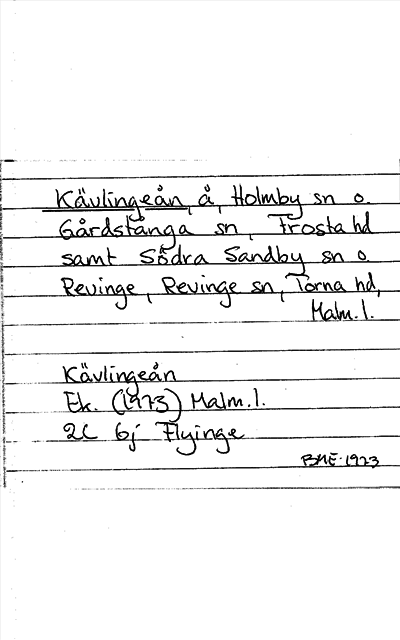 Kävlingeån, å, Holmby sn o.
Gårdstånga sn, Frosta hd
samt Södra Sandby sn o.
Revinge, Revinge sn, Torna hd,
Malm.l.
Kävlingeån
Ek. (1973) Malm.l.
2C 6j Flyinge